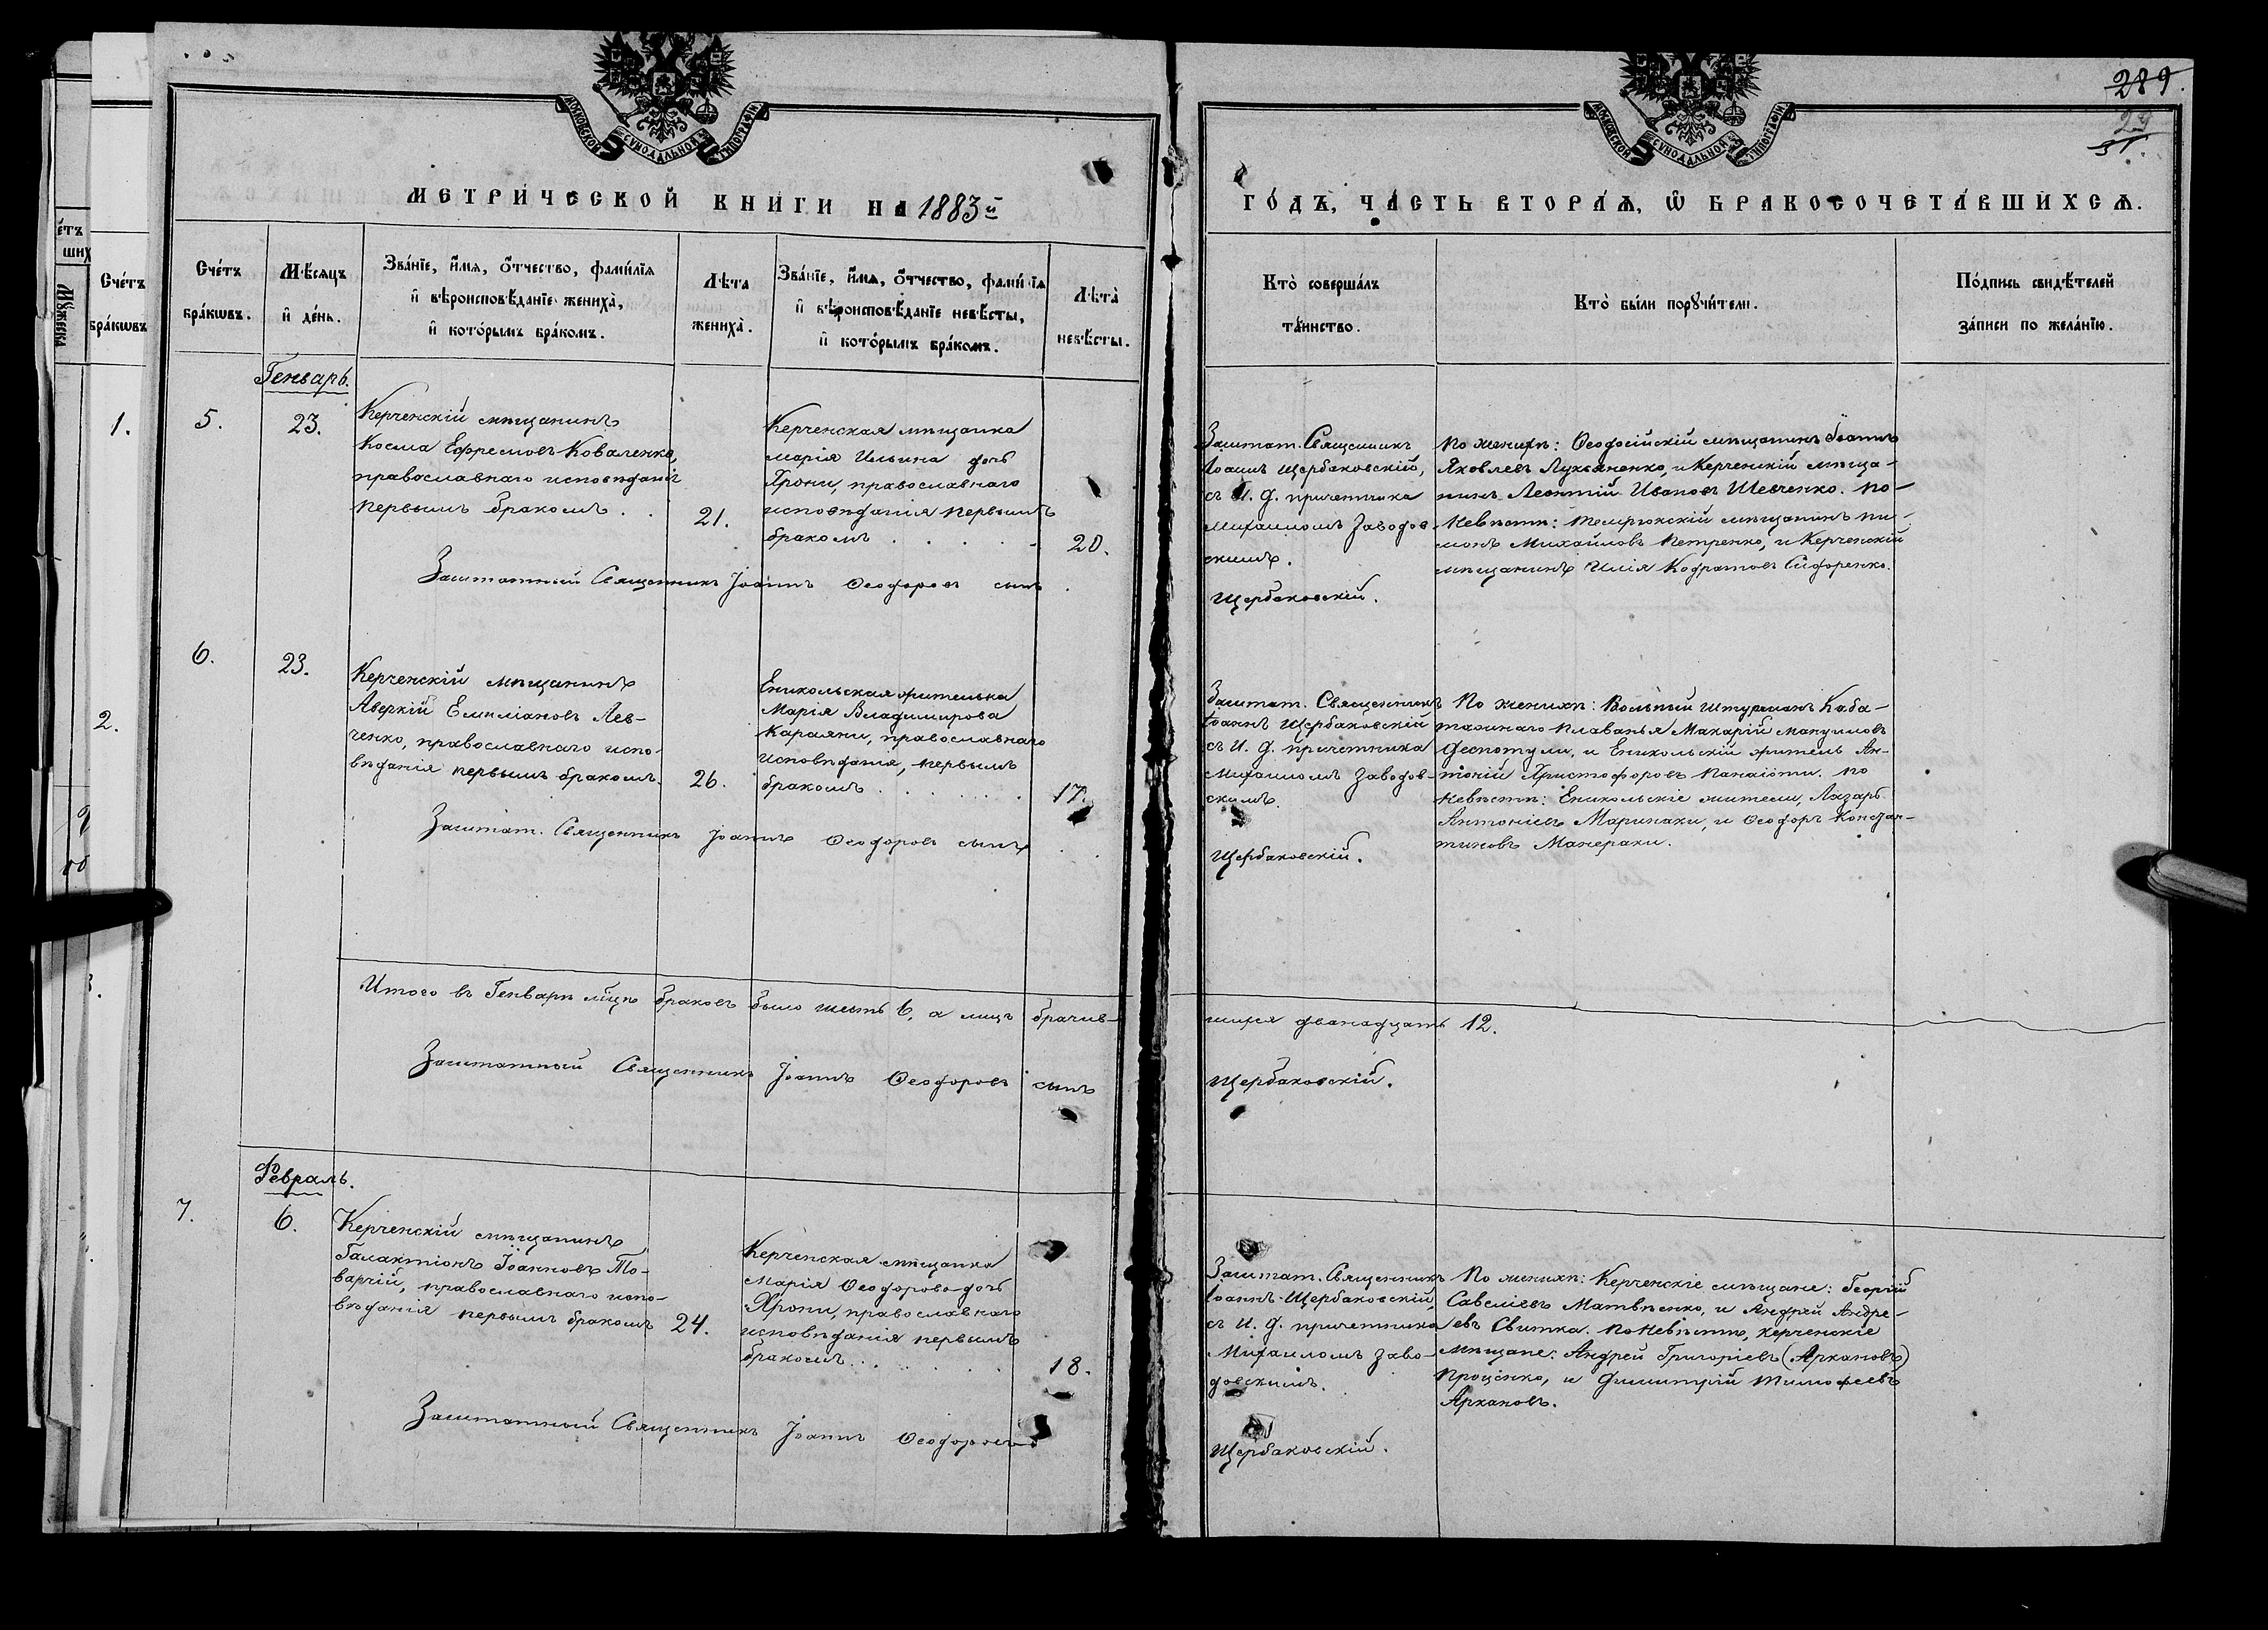 289.
29
МОСКОВСКОЙ СѴНОДАЛЬНОЙ ТИПОГРАФІИ
МОСКОВСКОЙ СѴНОДАЛЬНОЙ ТИПОГРАФІИ
МЕТРИЧЕСКОЙ КНИГИ НА 1883й
ГО́ДЪ, ЧА́СТЬ ВТОРА́Ѧ, Ѡ БРАКОСОЧЕТА́ВШИХСѦ.
Сче́тъ
бра́кѡвъ.
Мѣ́сяцъ
и҆ де́нь.
Зва́нїе, и҆́мѧ, ѻ҆́тчество, фами́лїѧ
и҆ вѣроисповѣ́данїе жениха̀,
и҆ кото́рымъ бра́комъ.
Лѣ́та
жениха̀.
Зва́нїе, и҆́мѧ, ѻ҆́тчество, фами́лїѧ
и҆ вѣроисповѣ́данїе невѣ́сты,
и҆ кото́рымъ бра́комъ.
Лѣ́та̀
невѣ́сты.
Кто̀ соверша́лъ
та́инство.
Кто̀ бы́ли порꙋчи́тели.
По́дпись свидѣ́телей
за́писи по жела́нїю.
Генварь.
5.
23.
Керченскій мѣщанинъ
Косма Ефремовъ Коваленко,
православнаго исповѣданія
первымъ бракомъ . .
21.
Керченская мѣщанка
Марія Ильина дочь
Хрони, православнаго
исповѣданія первымъ
бракомъ . . . . .
20.
Заштатный Священникъ Іоаннъ Ѳеодоровъ сынъ
Заштат. Священникъ
Іоаннъ Щербаковскій,
съ И. д. причетника
Михаиломъ Заводов-
скимъ.
Щербаковскій.
По женихѣ: Ѳеодосійскій мѣщанинъ Іоаннъ
Яковлевъ Лукьяненко, и Керченскій мѣща-
нинъ Леонтій Ивановъ Шевченко. По-
Невѣстѣ: Темрюкскій мѣщанинъ Пи-
монъ Михайловъ Петренко, и Керченскій
мѣщанинъ Илія Кодратовъ Сидоренко.
6.
23.
Керченскій мѣщанинъ
Аверкій Емиліановъ Лев-
ченко, православнаго испо-
вѣданія первымъ бракомъ.
26.
Еникольская жителька
Марія Владимирова
Караяни, православнаго
исповѣданія, первымъ
бракомъ . . . . . .
17.
Заштат. Священникъ Іоаннъ Ѳеодоровъ сынъ
Заштат. Священникъ
Іоаннъ Щербаковскій
съ И. д. причетника
Михаиломъ Заводов-
скимъ.
Щербаковскій.
По женихѣ: Вольный штурманъ Каба-
тажнаго плаванья Макарій Мануиловъ
Деспотули, и Еникольскій житель Ан-
тоній Христофоровъ Панаіоти. По
Невѣстѣ: Еникольскіе жители, Лазарь
Антоніевъ Маринаки, и Ѳеодоръ Констан-
тиновъ Манераки.
Итого въ Генварѣ мѣцѣ браковъ было шесть 6, а лицъ брачив-
шихся двѣнадцать 12.
Заштатный Священникъ Іоаннъ Ѳеодоровъ сынъ
Щербаковскій.
Февраль.
7.
6.
Керченскій мѣщанинъ
Галактіонъ Іоанновъ То-
варчій, православнаго испо-
вѣданія первымъ бракомъ
24.
Керченская мѣщанка
Марія Ѳеодорова дочь
Хрони, православнаго
исповѣданія первымъ
бракомъ . . . . . .
18.
Заштатный Священникъ Іоаннъ Ѳеодоровъ
Заштат. Священникъ
Іоаннъ Щербаковскій,
съ И. д. причетника
Михаиломъ Заво-
довскимъ.
Щербаковскій.
По женихѣ: Керченскіе мѣщане: Георгій
Савеліевъ Матвѣенко, и Андрей Андре-
евъ Свитка. По Невѣстѣ, Керченскіе
мѣщане: Андрей Григоріевъ (Архановъ)
Проценко, и Димитрій Тимофеевъ
Архановъ.
Сче́тъ
бра́кѡвъ
1.
2.